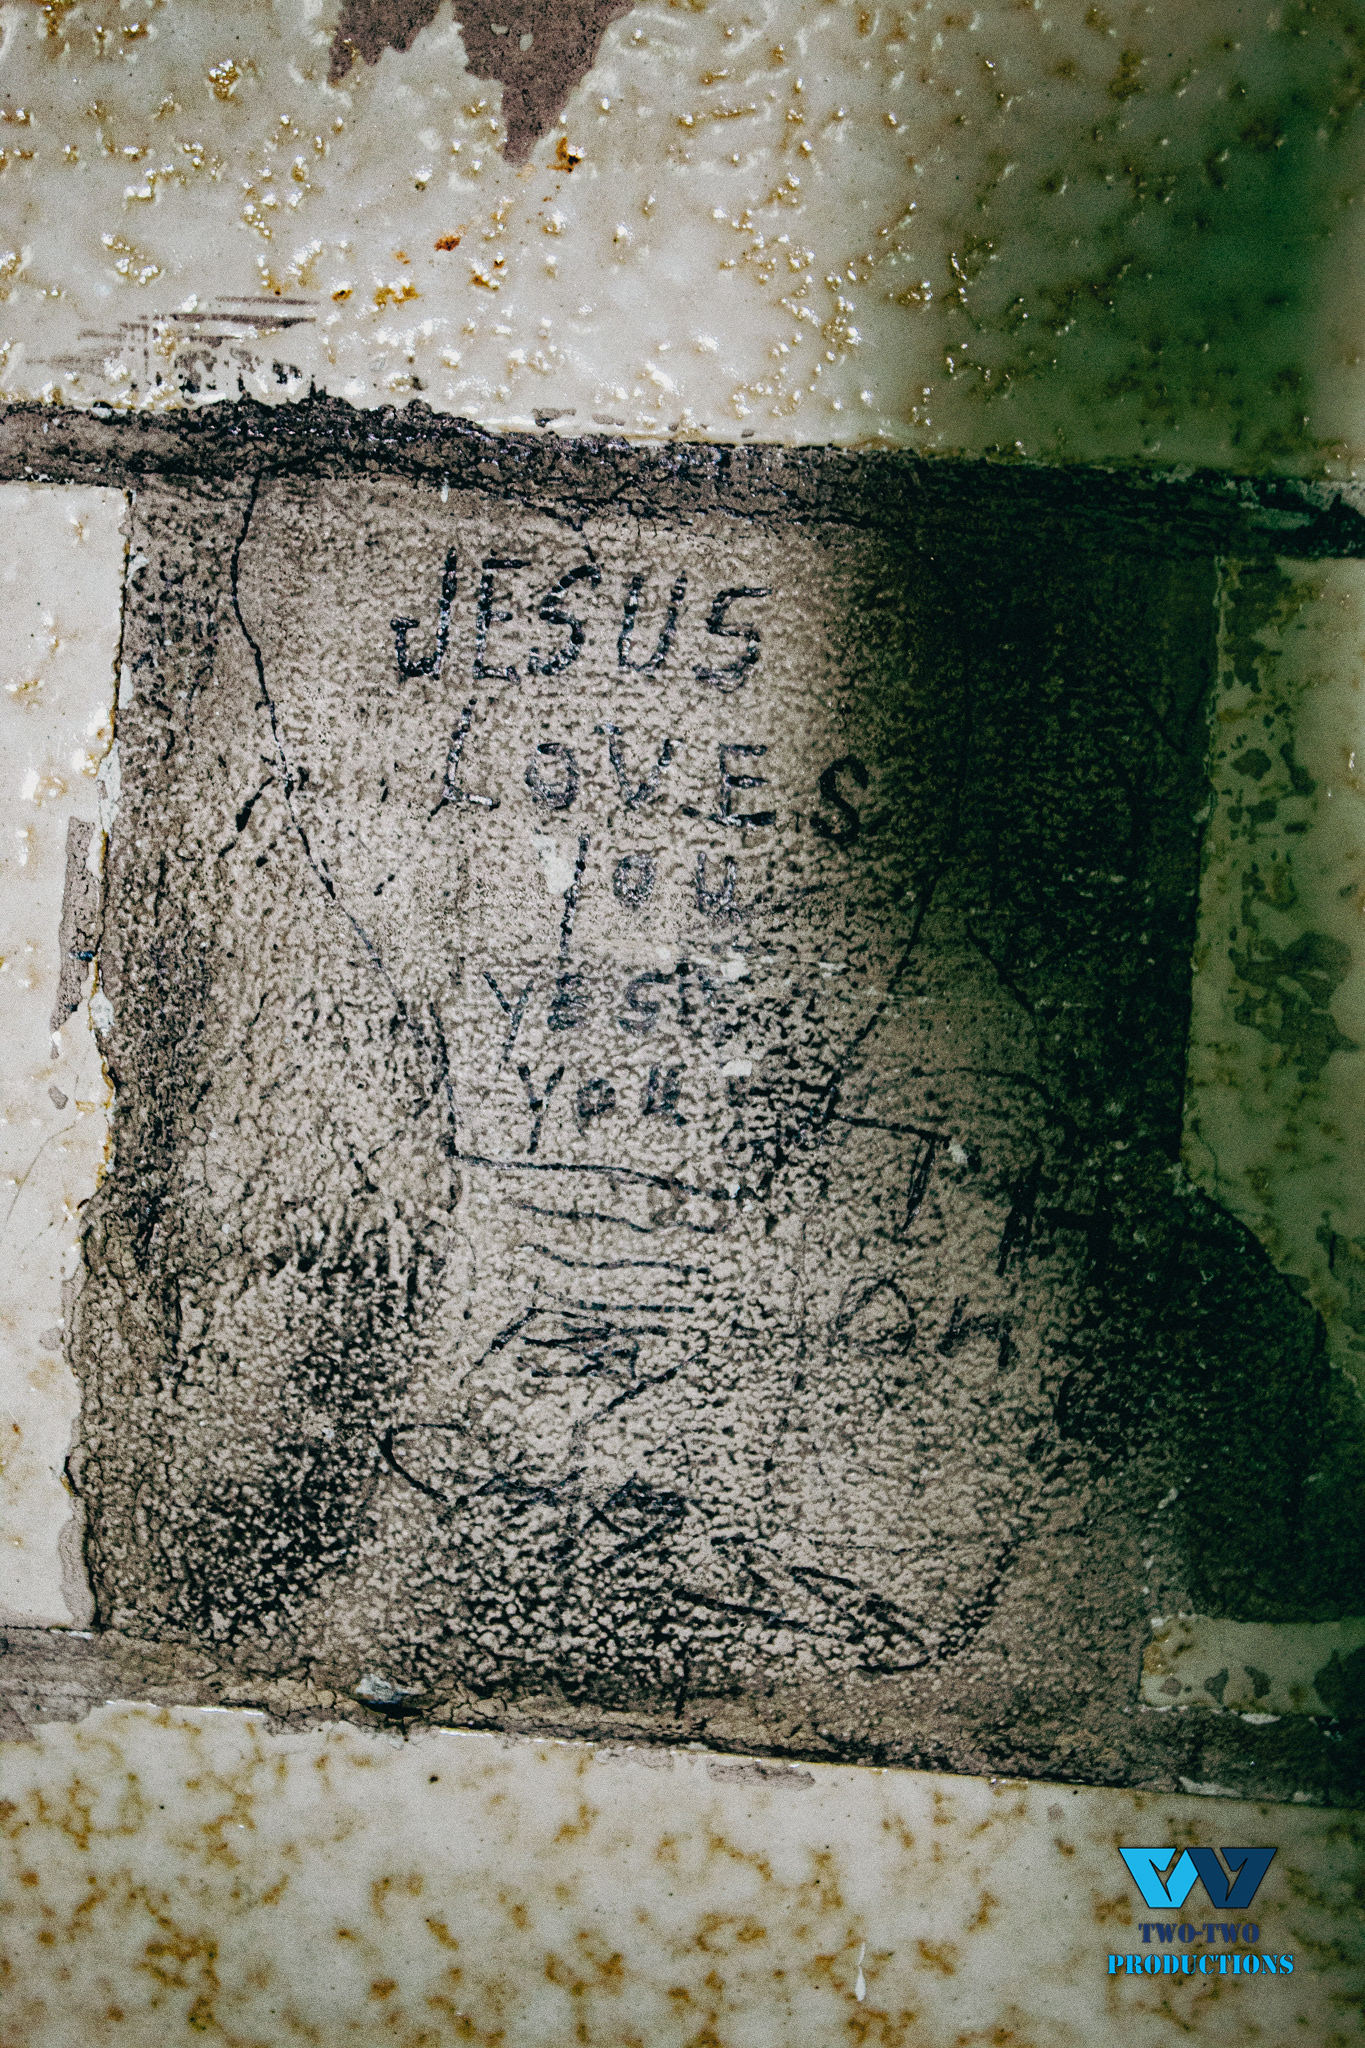 JESUS
LOVES
YOU
YES
YOU
TWO-TWO
PRODUCTIONS